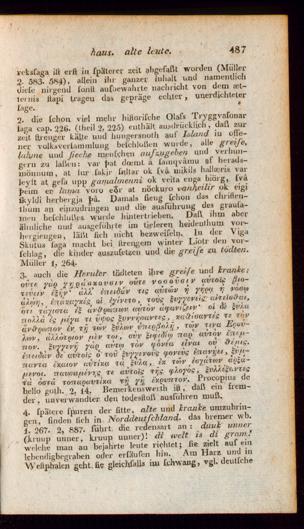 haus. alte leute. 487
rekssaga ist erst in späterer zeit abgefaßt worden (Müller
2. 583. 584), allein ihr ganzer inhalt und namentlich
diese nirgend sonst aufbewahrte nachricht von dem æt-
ternis stapi tragen das gepräge echter, unerdichteter
sage.
2. die schon viel mehr historische Olafs Tryggvasonar
saga cap. 226. (theil 2, 225) enthält ausdrücklich, daß zur
zeit strenger kälte und hungersnoth auf Island in offe-
ner volksversammlung beschlossen wurde, alle greise,
lahme und sieche menschen aufzugeben und verhun-
gern zu lassen: var þat dœmt á samqvâmu af herads-
mönnum, at fur sakir sultar ok svâ mikils hallæris var
leyft at gefa upp gamalmenni ok veita enga biörg, svâ
þeim er lama voro eðr at nöckuro vanheilir ok eigi
skyldi herbergja þâ. Damals stieg schon das christen-
thum an einzudringen und die ausführung des grausa-
men beschlusses wurde hintertrieben. Daß ihm aber
ähnliche und ausgeführte im tieferen heidenthum vor-
hergiengen, läßt sich nicht bezweifeln. In der Viga
Skutus saga macht bei strengem winter Liotr den vor-
schlag, die kinder auszusetzen und die greise zu tödten.
Müller 1, 264.
3. auch die Heruler tödteten ihre greise und kranke:
οὔτε γὰρ γηράσκουσιν οὔτε νοσοῦσιν αὐτοῖς βιο-
τεύειν ἐξῆν· ἀλλ' ἐπειδάν τις αὐτῶν ἢ γήρᾳ ἢ νόσῳ
ἁλῴη, ἐπάναγκές οἱ ἐγίνετο, τοὺς ξυγγενεῖς αἰτεῖσθαι,
ὅτι τάχιστα ἐξ ἀνθρώπων αὐτὸν ἀφανίζειν· οἱ δὲ ξύλα
πολλὰ ἐς μέγα τι ὕψος ξυννήσαντες, καθίσαντές τε τὸν
ἄνθρωπον ἐν τῇ τῶν ξύλων ὑπερβολῇ, τῶν τινα Ἐρού-
λων, ἀλλότριον μέν τοι, σὺν ξιφιδίῳ παρ' αὐτὸν ἔπεμ-
πον. ξυγγενῆ γὰρ αὐτῷ τὸν φονέα εἶναι οὐ θέμις.
ἐπειδὰν δὲ αὐτοῖς ὁ τοῦ ξυγγενοῦς φονεὺς ἐπανῄει, ξύμ-
παντα ἔκαιον αὐτίκα τὰ ξύλα, ἐκ τῶν ἐσχάτων ἀρξά-
μενοι. παυσαμένης τε αὐτοῖς τῆς φλογὸς, ξυλλέξαντες
τὰ ὀστᾶ τοπαραυτίκα τῇ γῇ ἔκρυπτον. Procopius de
bello goth. 2, 14. Bemerkenswerth ist, daß ein frem-
der, unverwandter den todesstoß ausführen muß.
4. spätere spuren der sitte, alte und kranke umzubrin-
gen, finden sich in Norddeutschland. das bremer wb.
1. 267. 2, 887. führt die redensart an: duuk unner
(kruup unner, kruup unner)! di welt is di gram!
welche man an bejahrte leute richtet; sie zielt auf ein
lebendigbegraben oder ersäufen hin. Am Harz und in
Westphalen geht sie gleichfalls im schwang, vgl. deutsche